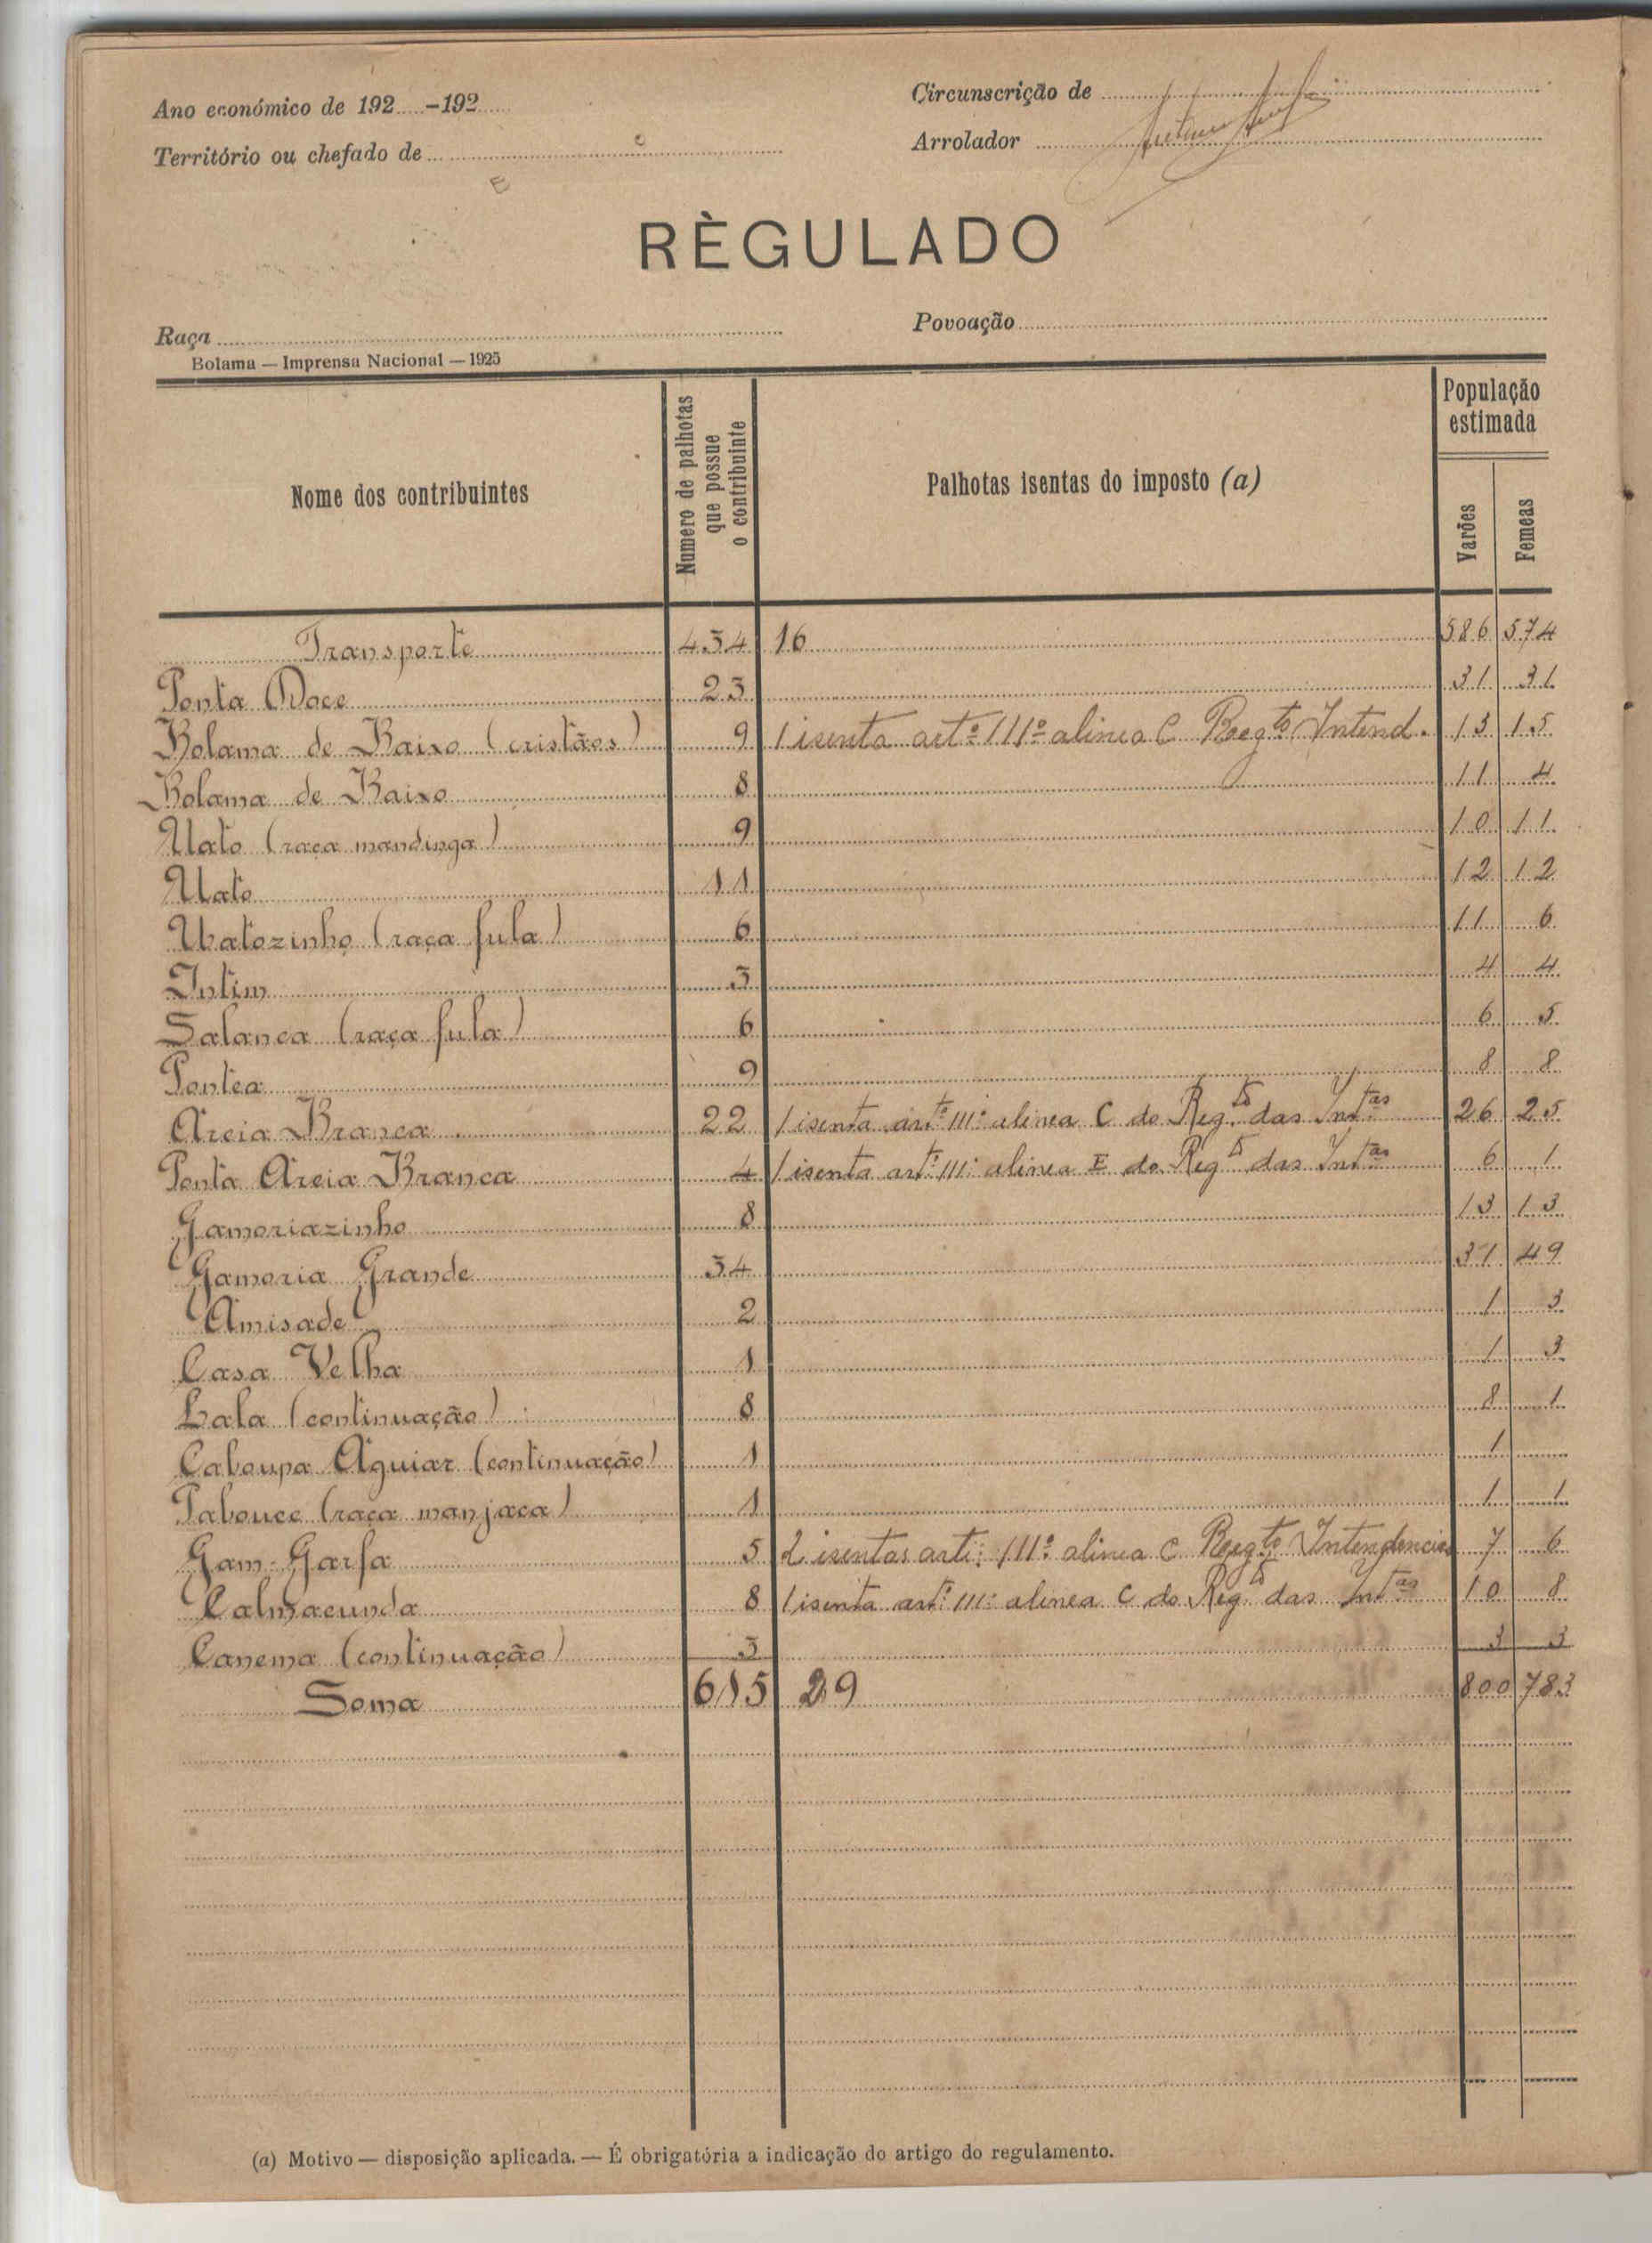 Ano económico de 192.....-192.....
Circunscrição de
Território ou chefado de
Arrolador
RÈGULADO
Raça
Povoação
Bolama — Imprensa Nacional — 1925
Nome dos contribuintes
Numero de palhotas que possue o contribuinte
Palhotas isentas do imposto (a)
População estimada
Varões
Femeas
Transporte 434 16 586 574
Ponta Doce 23 31 31
Bolama de Baixo (cristãos) 9 1 isenta artº 111º alinea C Regto Intend. 13 15
Bolama de Baixo 8 11 4
Uato (raça mandinga) 9 10 11
Uato 11 12 12
Uatozinho (raça fula) 6 11 6
Intim 3 4 4
Salanca (raça fula) 6 6 5
Pontea 9 8 8
Areia Branca 22 1 isenta artº 111º alinea C do Regto das Intas 26 25
Ponta Areia Branca 4 1 isenta artº 111º alinea E do Regto das Intas 6 1
Gamoriazinho 8 13 13
Gamoria Grande 34 31 49
Amisade 2 1 3
Casa Velha 1 1 3
Lala (continuação) 8 8 1
Caboupa Aguiar (continuação) 1 1
Tabouce (raça manjaca) 1 1 1
Gam-Garfa 5 2 isentas arti: 111º alinea C Regto Intendencias 7 6
Calmacunda 8 1 isenta artº 111º alinea C do Regto das Intas 10 8
Canema (continuação) 3 3 3
Soma 615 29 800 783
(a) Motivo — disposição aplicada. — É obrigatória a indicação do artigo do regulamento.